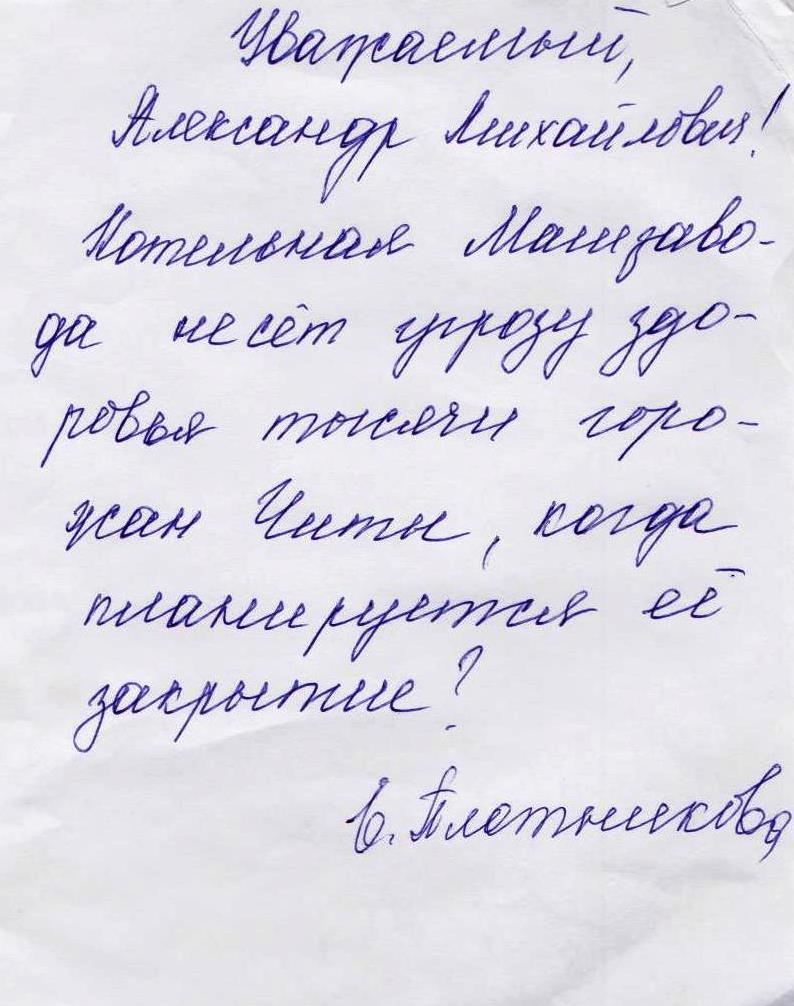 Уважаемый,
Александр Михайлович!
Котельная Машзаво-
да несёт угрозу здо-
ровья тысячи горо-
жан Читы, когда
планируется её
закрытие?
В. Плотникова